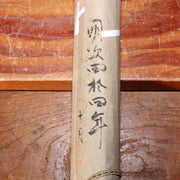 明治四拾四年